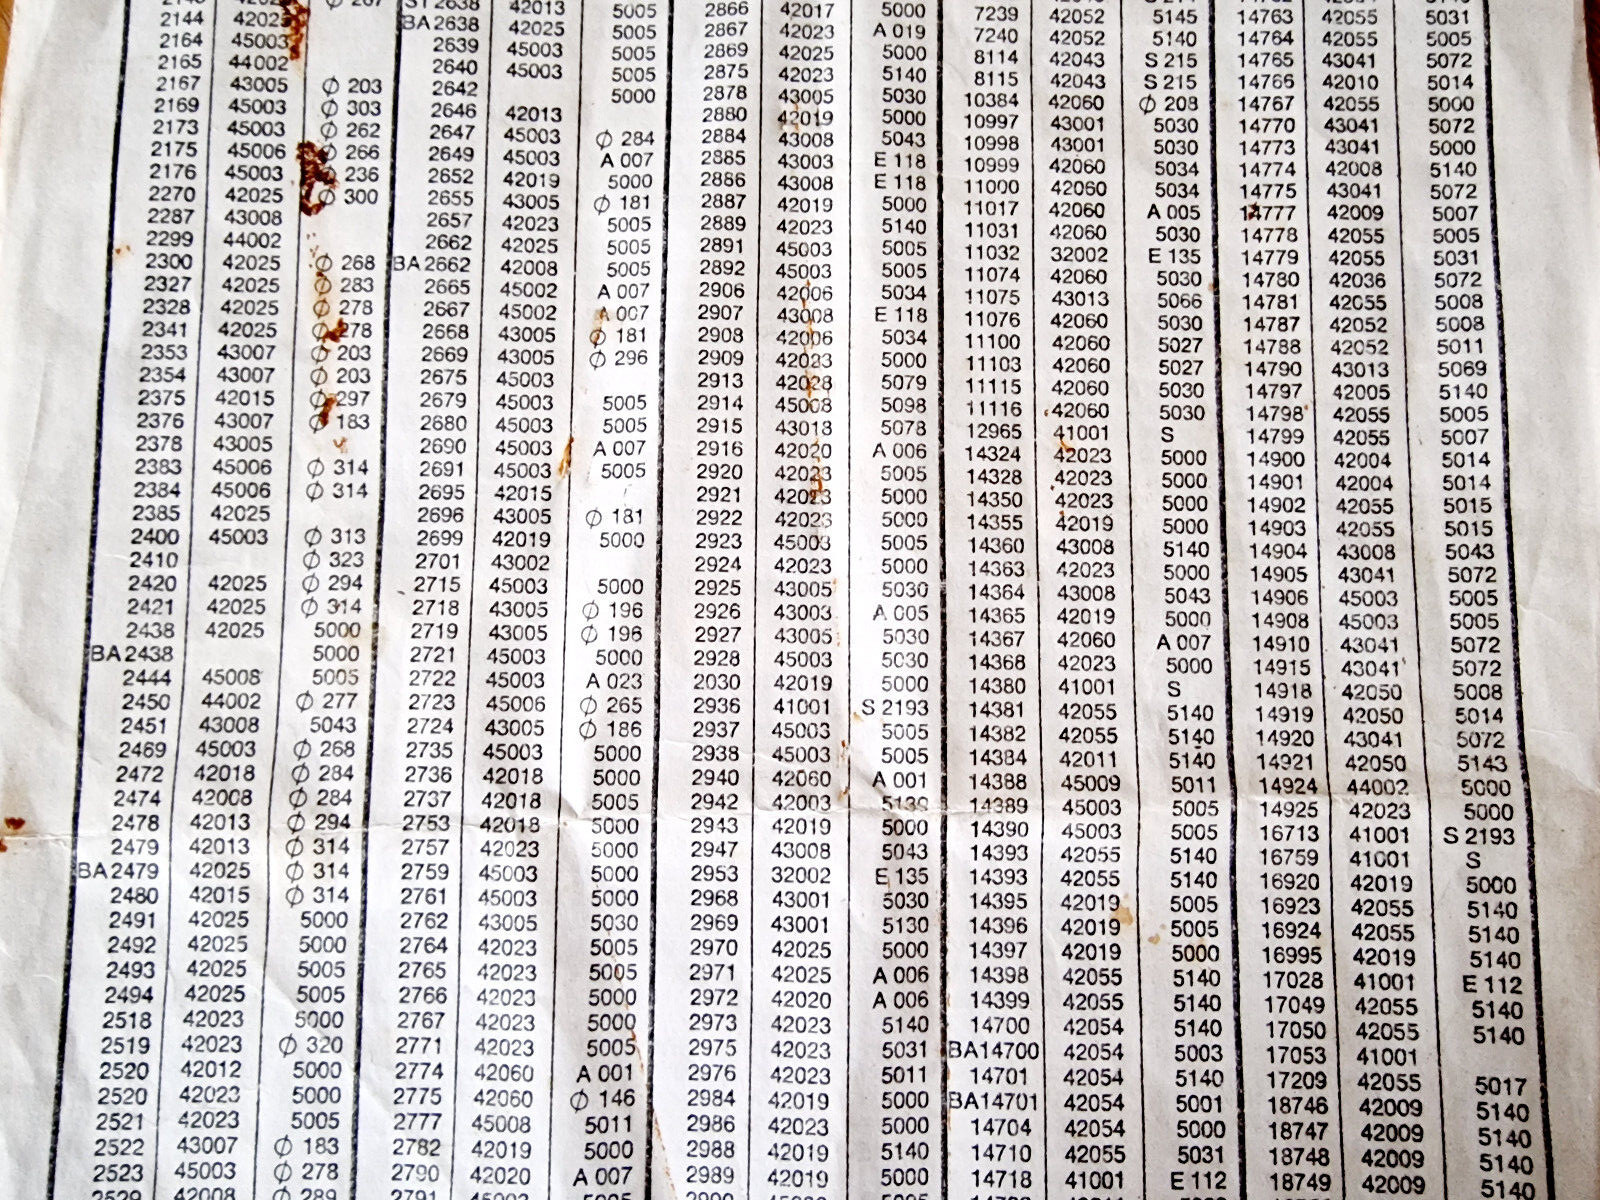 2144 42025
2164 45003
2165 44002
2167 43005 Ø 203
2169 45003 Ø 303
2173 45003 Ø 262
2175 45006 Ø 266
2176 45003 Ø 236
2270 42025 Ø 300
2287 43008
2299 44002
2300 42025 Ø 268
2327 42025 Ø 283
2328 42025 Ø 278
2341 42025 Ø 278
2353 43007 Ø 203
2354 43007 Ø 203
2375 42015 Ø 297
2376 43007 Ø 183
2378 43005
2383 45006 Ø 314
2384 45006 Ø 314
2385 42025
2400 45003 Ø 313
2410 Ø 323
2420 42025 Ø 294
2421 42025 Ø 314
2438 42025 5000
BA2438 5000
2444 45008 5005
2450 44002 Ø 277
2451 43008 5043
2469 45003 Ø 268
2472 42018 Ø 284
2474 42008 Ø 284
2478 42013 Ø 294
2479 42013 Ø 314
BA2479 42025 Ø 314
2480 42015 Ø 314
2491 42025 5000
2492 42025 5000
2493 42025 5005
2494 42025 5005
2518 42023 5000
2519 42023 Ø 320
2520 42012 5000
2520 42023 5000
2521 42023 5005
2522 43007 Ø 183
2523 45003 Ø 278
2529 42008 Ø 289
42013 5005
BA2638 42025 5005
2639 45003 5005
2640 45003 5005
2642 5000
2646 42013
2647 45003 Ø 284
2649 45003 A 007
2652 42019 5000
2655 43005 Ø 181
2657 42023 5005
2662 42025 5005
BA2662 42008 5005
2665 45002 A 007
2667 45002 A 007
2668 43005 Ø 181
2669 43005 Ø 296
2675 45003
2679 45003 5005
2680 45003 5005
2690 45003 A 007
2691 45003 5005
2695 42015
2696 43005 Ø 181
2699 42019 5000
2701 43002
2715 45003 5000
2718 43005 Ø 196
2719 43005 Ø 196
2721 45003 5000
2722 45003 A 023
2723 45006 Ø 265
2724 43005 Ø 186
2735 45003 5000
2736 42018 5000
2737 42018 5005
2753 42018 5000
2757 42023 5000
2759 45003 5000
2761 45003 5000
2762 43005 5030
2764 42023 5005
2765 42023 5005
2766 42023 5000
2767 42023 5000
2771 42023 5005
2774 42060 A 001
2775 42060 Ø 146
2777 45008 5011
2782 42019 5000
2790 42020 A 007
2791 45003 5005
2866 42017 5000
2867 42023 A 019
2869 42025 5000
2875 42023 5140
2878 43005 5030
2880 42019 5000
2884 43008 5043
2885 43003 E 118
2886 43008 E 118
2887 42019 5000
2889 42023 5140
2891 45003 5005
2892 45003 5005
2906 42006 5034
2907 43008 E 118
2908 42006 5034
2909 42023 5000
2913 42028 5079
2914 45008 5098
2915 43018 5078
2916 42020 A 006
2920 42023 5005
2921 42023 5000
2922 42023 5000
2923 45003 5005
2924 42023 5000
2925 43005 5030
2926 43003 A 005
2927 43005 5030
2928 45003 5030
2030 42019 5000
2936 41001 S 2193
2937 45003 5005
2938 45003 5005
2940 42060 A 001
2942 42003 5139
2943 42019 5000
2947 43008 5043
2953 32002 E 135
2968 43001 5030
2969 43001 5130
2970 42025 5000
2971 42025 A 006
2972 42020 A 006
2973 42023 5140
2975 42023 5031
2976 42023 5011
2984 42019 5000
2986 42023 5000
2988 42019 5140
2989 42019 5000
7239 42052 5145
7240 42052 5140
8114 42043 S 215
8115 42043 S 215
10384 42060 Ø 208
10997 43001 5030
10998 43001 5030
10999 42060 5034
11000 42060 5034
11017 42060 A 005
11031 42060 5030
11032 32002 E 135
11074 42060 5030
11075 43013 5066
11076 42060 5030
11100 42060 5027
11103 42060 5027
11115 42060 5030
11116 42060 5030
12965 41001 S
14324 42023 5000
14328 42023 5000
14350 42023 5000
14355 42019 5000
14360 43008 5140
14363 42023 5000
14364 43008 5043
14365 42019 5000
14367 42060 A 007
14368 42023 5000
14380 41001 S
14381 42055 5140
14382 42055 5140
14384 42011 5140
14388 45009 5011
14389 45003 5005
14390 45003 5005
14393 42055 5140
14393 42055 5140
14395 42019 5005
14396 42019 5005
14397 42019 5000
14398 42055 5140
14399 42055 5140
14700 42054 5140
BA14700 42054 5003
14701 42054 5140
BA14701 42054 5001
14704 42054 5000
14710 42055 5031
14718 41001 E 112
14763 42055 5031
14764 42055 5005
14765 43041 5072
14766 42010 5014
14767 42055 5000
14770 43041 5072
14773 43041 5000
14774 42008 5140
14775 43041 5072
14777 42009 5007
14778 42055 5005
14779 42055 5031
14780 42036 5072
14781 42055 5008
14787 42052 5008
14788 42052 5011
14790 43013 5069
14797 42005 5140
14798 42055 5005
14799 42055 5007
14900 42004 5014
14901 42004 5014
14902 42055 5015
14903 42055 5015
14904 43008 5043
14905 43041 5072
14906 45003 5005
14908 45003 5005
14910 43041 5072
14915 43041 5072
14918 42050 5008
14919 42050 5014
14920 43041 5072
14921 42050 5143
14924 44002 5000
14925 42023 5000
16713 41001 S 2193
16759 41001 S
16920 42019 5000
16923 42055 5140
16924 42055 5140
16995 42019 5140
17028 41001 E 112
17049 42055 5140
17050 42055 5140
17053 41001
17209 42055 5017
18746 42009 5140
18747 42009 5140
18748 42009 5140
18749 42009 5140